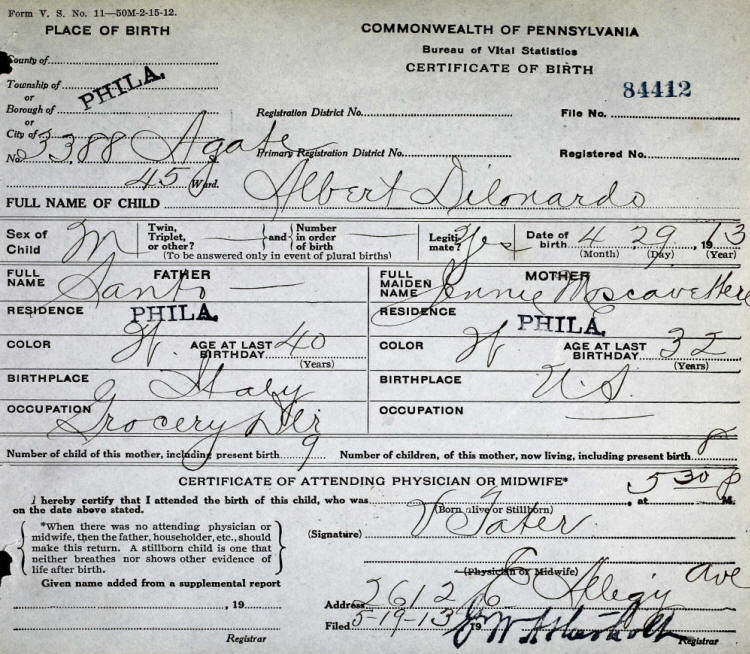 Form V. S. No. 11—50M-2-15-12.
PLACE OF BIRTH
COMMONWEALTH OF PENNSYLVANIA
Bureau of Vital Statistics
CERTIFICATE OF BIRTH
County of
Township of
or
Borough of
or
City of
PHILA.
84412
Registration District No.
File No.
No. 3388 Agate
Primary Registration District No.
Registered No.
45 Ward.
FULL NAME OF CHILD Albert Dilonardo
Sex of Child M
Twin, Triplet, or other?
and
Number in order of birth
(To be answered only in event of plural births)
Legiti-mate? Yes
Date of birth 4 29, 1913
(Month) (Day) (Year)
FATHER
FULL NAME Santo
MOTHER
FULL MAIDEN NAME Jennie
RESIDENCE PHILA.
RESIDENCE PHILA.
COLOR W. AGE AT LAST BIRTHDAY 40
(Years)
COLOR W AGE AT LAST BIRTHDAY 32
(Years)
BIRTHPLACE Italy
BIRTHPLACE U.S.
OCCUPATION Grocery Dlr
OCCUPATION
Number of child of this mother, including present birth 9
Number of children, of this mother, now living, including present birth 8
CERTIFICATE OF ATTENDING PHYSICIAN OR MIDWIFE*
I hereby certify that I attended the birth of this child, who was , at 530 P M.
on the date above stated.
(Born alive or Stillborn)
*When there was no attending physician or
midwife, then the father, householder, etc., should
make this return. A stillborn child is one that
neither breathes nor shows other evidence of
life after birth.
(Signature) V
(Physician or Midwife)
Given name added from a supplemental report
, 19
Registrar
Address 2612 E Allegy Ave
Filed 5-19-13 19
Registrar